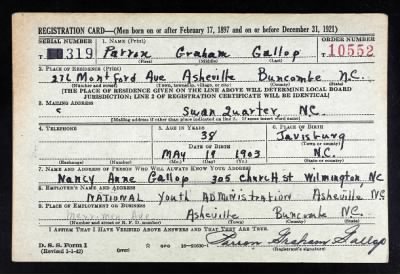 REGISTRATION CARD—(Men born on or after February 17, 1897 and on or before December 31, 1921)
SERIAL NUMBER 1. NAME (Print) ORDER NUMBER
T 319 Parron Graham Gallop T 10552
(First) (Middle) (Last)
2. PLACE OF RESIDENCE (Print)
276 Montford Ave Asheville Buncombe N.C.
(Number and street) (Town, township, village, or city) (County) (State)
[THE PLACE OF RESIDENCE GIVEN ON THE LINE ABOVE WILL DETERMINE LOCAL BOARD
JURISDICTION; LINE 2 OF REGISTRATION CERTIFICATE WILL BE IDENTICAL]
3. MAILING ADDRESS
Swan Quarter N.C.
[Mailing address if other than place indicated on line 2. If same insert word same]
4. TELEPHONE 5. AGE IN YEARS 6. PLACE OF BIRTH
38 Jarvisburg
DATE OF BIRTH (Town or county)
MAY 19 1903 N.C.
(Exchange) (Number) (Mo.) (Day) (Yr.) (State or country)
7. NAME AND ADDRESS OF PERSON WHO WILL ALWAYS KNOW YOUR ADDRESS
Nancy Anne Gallop 305 Church St Wilmington NC
8. EMPLOYER'S NAME AND ADDRESS
NATIONAL Youth ADMINISTRATION Asheville NC
9. PLACE OF EMPLOYMENT OR BUSINESS
Merrimon Ave Asheville Buncombe N.C.
(Number and street or R. F. D. number) (Town) (County) (State)
I AFFIRM THAT I HAVE VERIFIED ABOVE ANSWERS AND THAT THEY ARE TRUE.
D. S. S. Form 1
(Revised 1-1-42) (over) Parron Graham Gallop